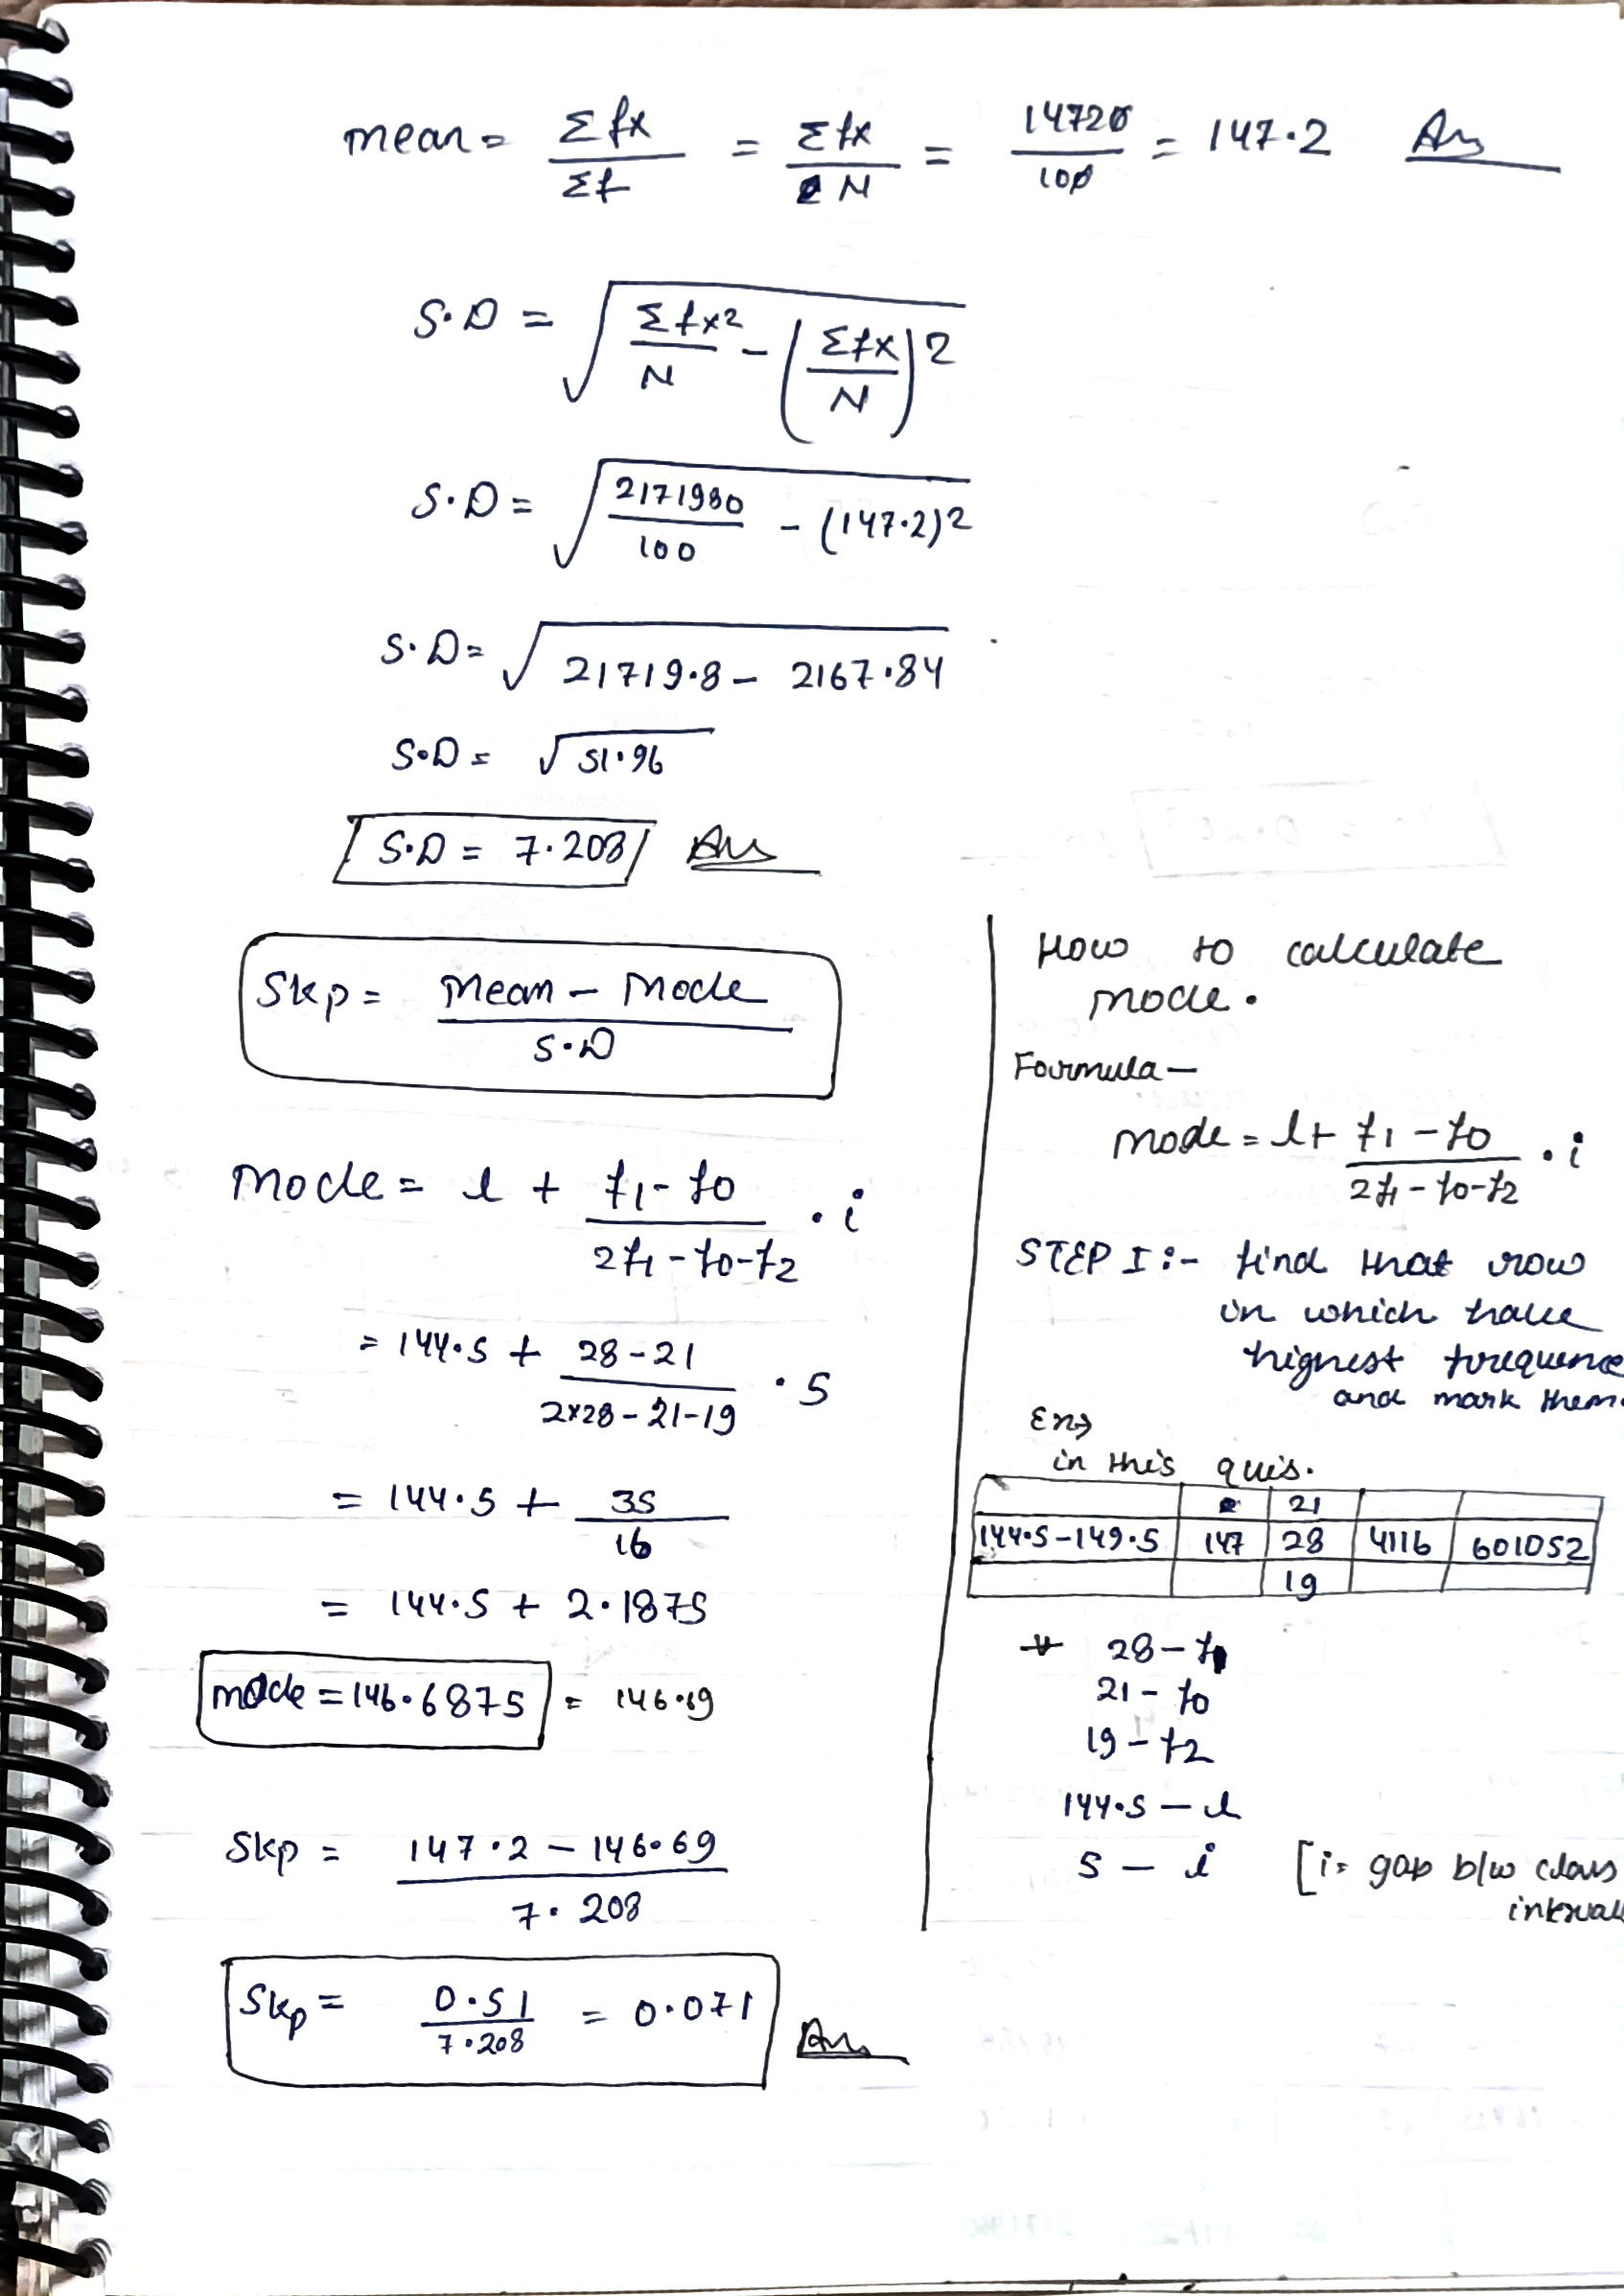 mean = Σfx/Σf = Σfx/N = 14720/100 = 147.2 Ans
S.D = √(Σfx²/N - (Σfx/N)²)
S.D = √(2171980/100 - (147.2)²)
S.D = √(21719.8 - 2167.84)
S.D = √51.96
S.D = 7.208 Ans
Skp = Mean - Mode/S.D
Mode = l + f1 - f0/2f1 - f0 - f2 . i
= 144.5 + 28 - 21/2×28 - 21 - 19 . 5
= 144.5 + 35/16
= 144.5 + 2.1875
mode = 146.6875 = 146.69
Skp = 147.2 - 146.69/7.208
Skp = 0.51/7.208 = 0.071 Ans
How to calculate
mode.
Formula —
mode = l + f1 - f0/2f1 - f0 - f2 . i
STEP I :- find that row
in which have
highest frequence
and mark them.
Ex→
in this quis.
21
144.5-149.5 147 28 4116 601052
19
28 - f1
21 - f0
19 - f2
144.5 - l
5 - i [i= gap b/w class
interval